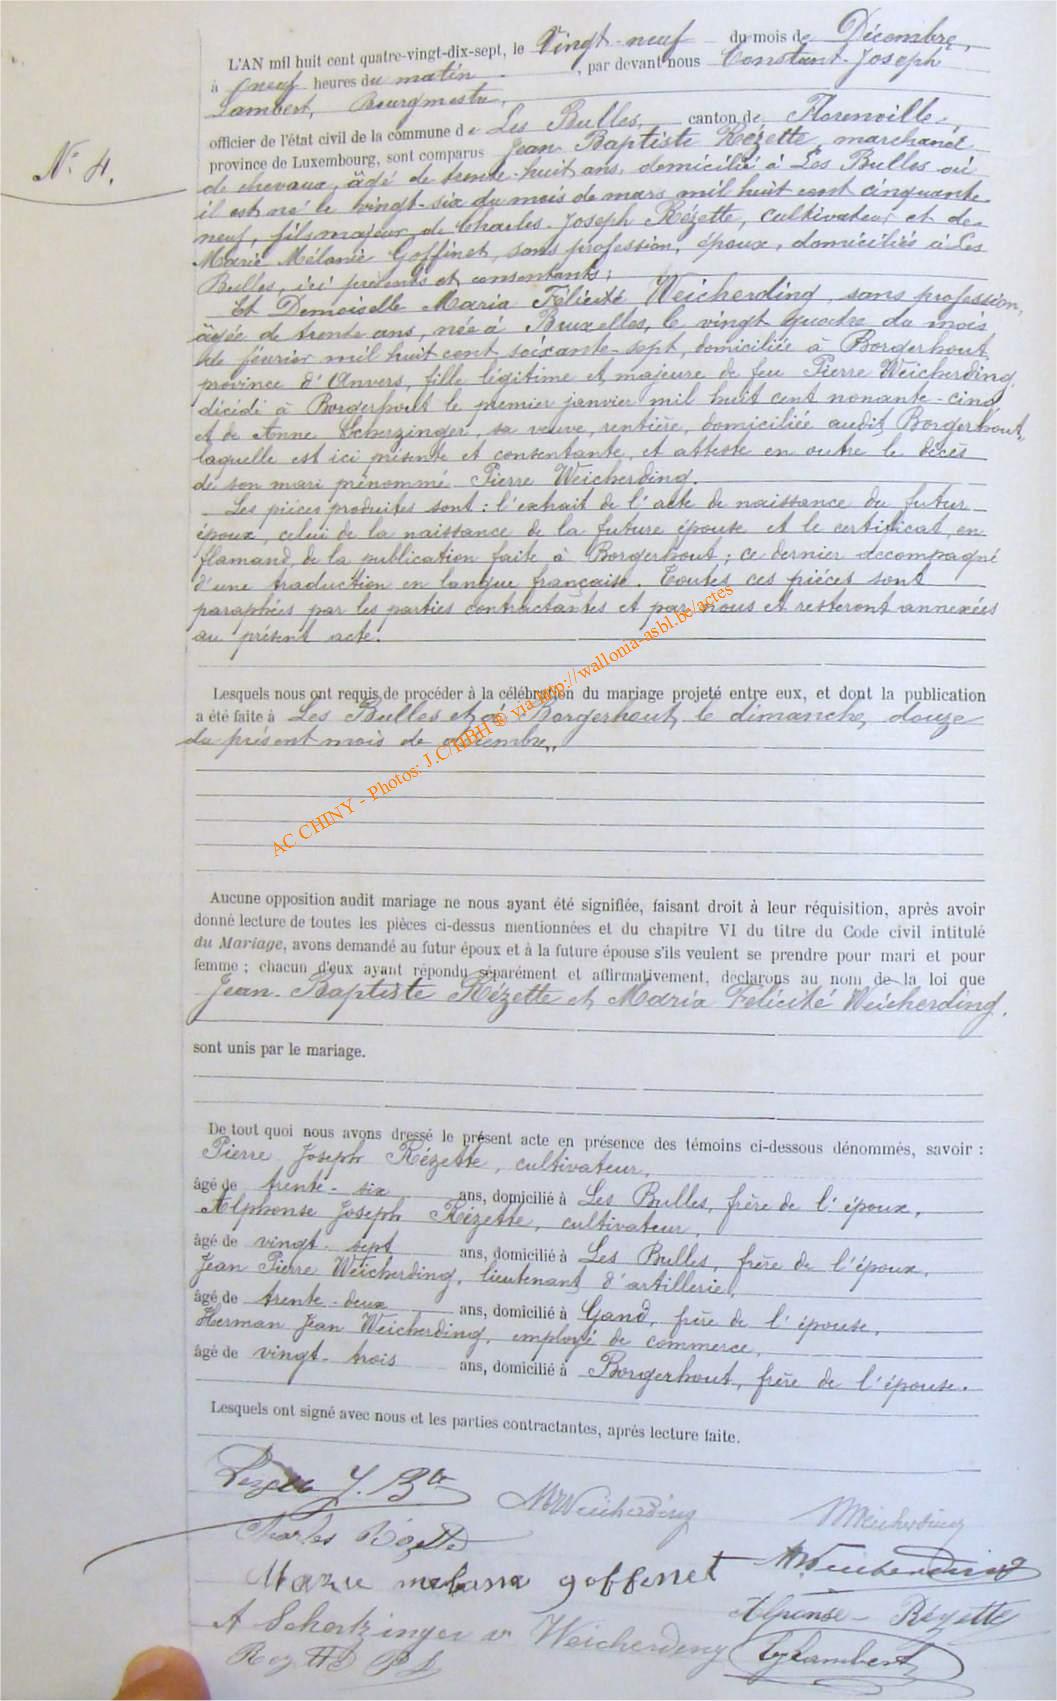 L'AN mil huit cent quatre-vingt-dix-sept, le Vingt-neuf du mois de Décembre,
à neuf heures du matin, par devant nous Constant-Joseph
Lambert, Bourgmestre,
officier de l'état civil de la commune de Les Bulles, canton de Florenville,
N° 4.
province de Luxembourg, sont comparus Jean Baptiste Rézette, marchand
de chevaux, âgé de trente-huit ans, domicilié à Les Bulles où
il est né le vingt-six du mois de mars mil huit cent cinquante
neuf, fils majeur de Charles-Joseph Rézette, cultivateur et de
Marie-Mélanie Goffinet, sans profession, époux, domiciliés à Les
Bulles, ici présents et consentants;
Et Demoiselle Maria Félicité Weicherding, sans profession,
âgée de trente ans, née à Bruxelles, le vingt quatre du mois
de février mil huit cent soixante-sept, domiciliée à Borgerhout,
province d'Anvers, fille légitime et majeure de feu Pierre Weicherding,
décédé à Borgerhout le premier janvier mil huit cent nonante-cinq
et de Anne Scherzinger, sa veuve, rentière, domiciliée audit Borgerhout,
laquelle est ici présente et consentante, et atteste en outre le décès
de son mari prénommé Pierre Weicherding.
Les pièces produites sont : l'extrait de l'acte de naissance du futur
époux, celui de la naissance de la future épouse et le certificat, en
flamand, de la publication faite à Borgerhout; ce dernier accompagné
d'une traduction en langue française. Toutes ces pièces sont
paraphées par les parties contractantes et par nous et resteront annexées
au présent acte.
Lesquels nous ont requis de procéder à la célébration du mariage projeté entre eux, et dont la publication
a été faite à Les Bulles et à Borgerhout, le dimanche, douze
du présent mois de décembre,,
AC CHINY - Photos: J.C/HBH ® via http://wallonia-asbl.be/actes
Aucune opposition audit mariage ne nous ayant été signifiée, faisant droit à leur réquisition, après avoir
donné lecture de toutes les pièces ci-dessus mentionnées et du chapitre VI du titre du Code civil intitulé
du Mariage, avons demandé au futur époux et à la future épouse s'ils veulent se prendre pour mari et pour
femme ; chacun d'eux ayant répondu séparément et affirmativement, déclarons au nom de la loi que
Jean-Baptiste Rézette et Maria Félicité Weicherding.
sont unis par le mariage.
De tout quoi nous avons dressé le présent acte en présence des témoins ci-dessous dénommés, savoir :
Pierre Joseph Rézette, cultivateur,
âgé de trente-six ans, domicilié à Les Bulles, frère de l'époux,
Alphonse Joseph Rézette, cultivateur,
âgé de vingt-sept ans, domicilié à Les Bulles, frère de l'époux,
Jean Pierre Weicherding, lieutenant d'artillerie,
âgé de trente-deux ans, domicilié à Gand, frère de l'épouse,
Herman Jean Weicherding, employé de commerce,
âgé de vingt-trois ans, domicilié à Borgerhout, frère de l'épouse.
Lesquels ont signé avec nous et les parties contractantes, après lecture faite.
J. Bte
Weicherding
Weicherding
Charles Rézette
Marie melanie goffinet
Alphonse Rézette
A Schertzinger v Weicherding
CJ Lambert
Rezette P J